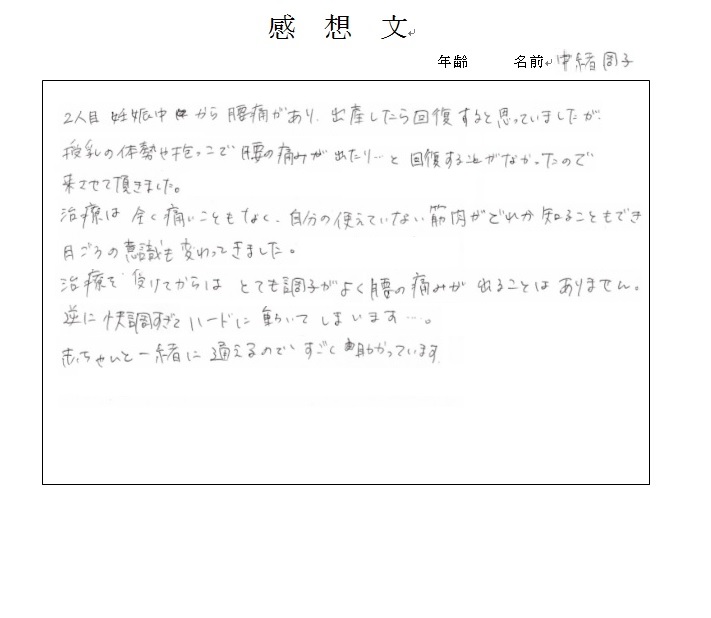 感 想 文
年齢 名前 中緒 周子
2人目 妊娠中 から 腰痛があり、出産したら回復すると思っていましたが
授乳の体勢や抱っこで 腰の痛みが 出たり…と 回復することがなかったので
来させて頂きました。
治療は 全く痛いこともなく、自分の使えていない 筋肉がどれか 知ることもでき
日ごろの意識も変わってきました。
治療を 受けてからは とても調子がよく腰の痛みが 出ることは ありません。
逆に 快調すぎて ハードに 動いて しまいます…。
赤ちゃんと一緒に 通えるので、すごく 助かっています